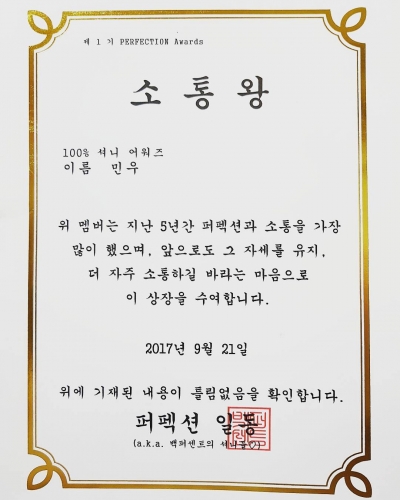 제 1 기 PERFECTION Awards
소통왕
100% 셔니 어워즈
이름 민우
위 멤버는 지난 5년간 퍼펙션과 소통을 가장
많이 했으며, 앞으로도 그 자세를 유지,
더 자주 소통하길 바라는 마음으로
이 상장을 수여합니다.
2017년 9월 21일
위에 기재된 내용이 틀림없음을 확인합니다.
퍼펙션 일동
(a.k.a. 백퍼센트의 셔니들♡)